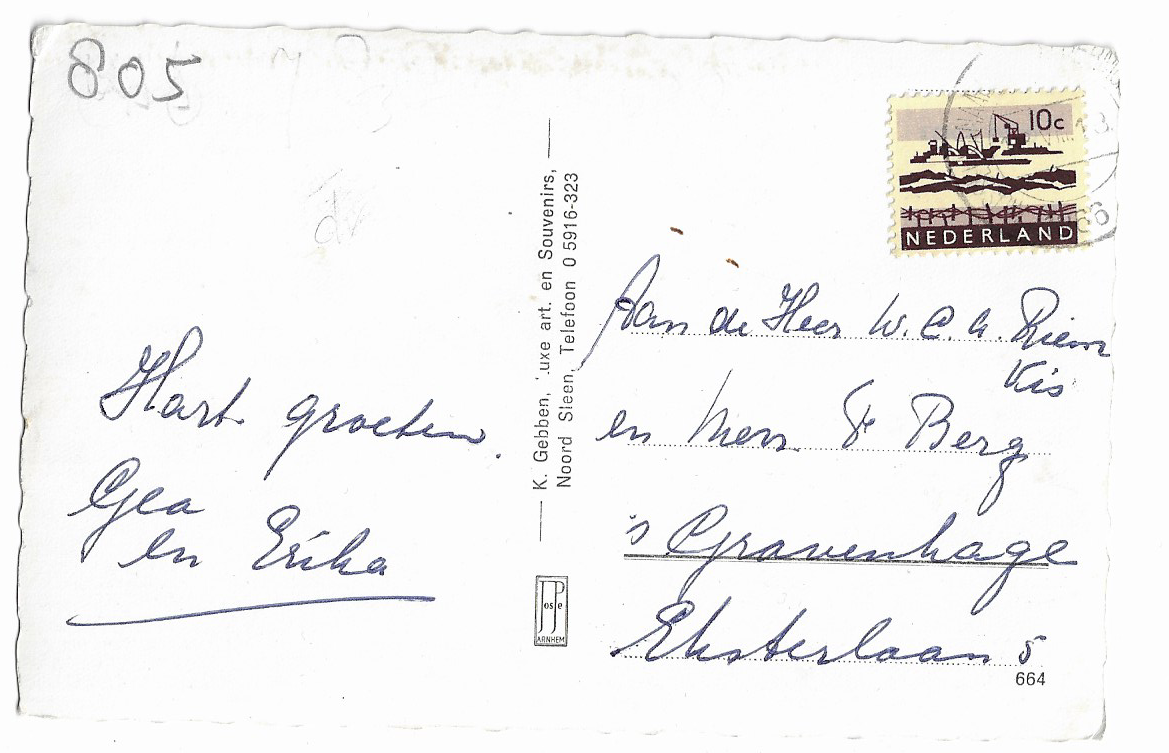 805
Hart. groeten.
Gea
en Erika
K. Gebben, 'uxe art. en Souvenirs,
Noord Sleen, Telefoon 0 5916-323
JP
os e
ARNHEM
10c
NEDERLAND
66
Aan de Heer W. C. A. Riem
Vis
en Mevr. Berg
's Gravenhage
Eksterlaan 5
664